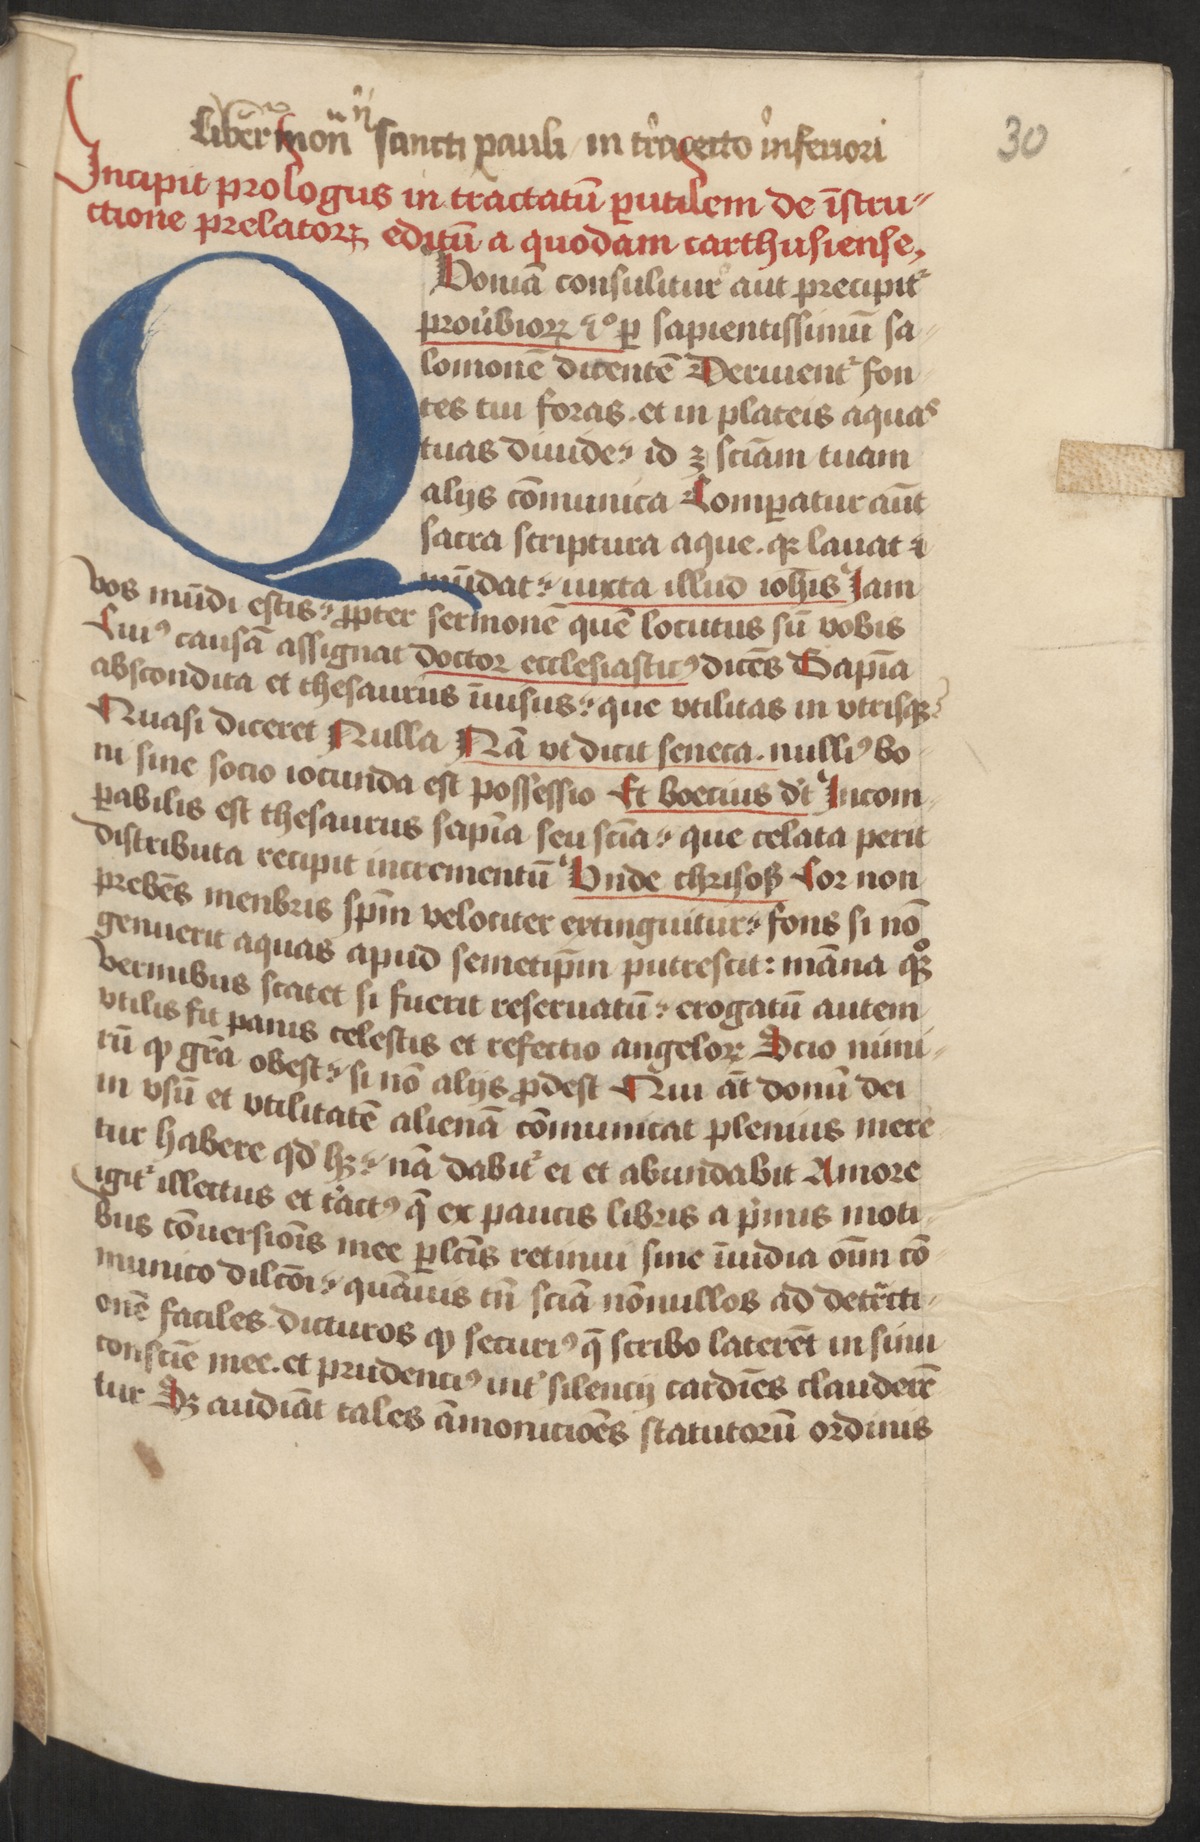 30
Liber mon̄ sancti pauli in traiecto inferiori
Incipit prologus in tractatū ꝑutilem de īstru-
ctione prelatorꝝ editū a quodam carthusiense.
QUoniā consulitur aut precipit᷑
prouerbiorꝝ ꝑ sapientissimū sa-
lomonē dicentē Deriuent᷑ fon
tes tui foras . et in plateis aquas
tuas diuide id ꝫ sciām tuam
alijs cōmunica Comꝑatur aūt
sacra scriptura aque . qꝛ lauat ⁊
mūdat iuxta illud ioh̄is Iam
vos mūdi estis ꝓpter sermonē quē locutus sū vobis
Cuiꝰ causā assignat doctor ecclesiasticꝰ dicēs Sapīa
abscondita et thesaurus īuisus que vtilitas in vtrisqꝫ
Quasi diceret Nulla Nā vt dicit seneca . nulliꝰ bo-
ni sine socio iocunda est possessio Et boecius dt̄ Incom-
ꝑabilis est thesaurus sapīa seu scīa que celata perit
distributa recipit incrementū Unde chrisoꝫ Cor non
prebēs menbris sp̄m velociter extinguitur fons si nō
genuerit aquas apud semetip̄m putrescit : māna qꝫ
vermibus scatet si fuerit reseruatū erogatū autem
vtilis fit panis celestis et refectio angeloꝝ Scio nimi-
rū ꝙ gr̄a obest si nō alijs ꝓdest Qui āt donū dei
in vsū et vtilitatē alienā cōmunicat plenius mere
tur habere qd̓ hꝫ nā dabit᷑ ei et abundabit Amore
igit᷑ illectus et tractꝰ q̄ ex paucis libris a primis moti-
bus cōuersiois mee ꝑlcīs retinui sine īuidia oūm cō-
munico dilcōi quāuis tn̄ sciā nōnullos ad detracti-
onē faciles dicturos ꝙ securiꝰ q̄ scribo laterēt in sinu
consciē mee . et prudenciꝰ int᷑ silencij cardīes clauderē
tur Sꝫ audiāt tales āmonicioēs statutorū ordinis